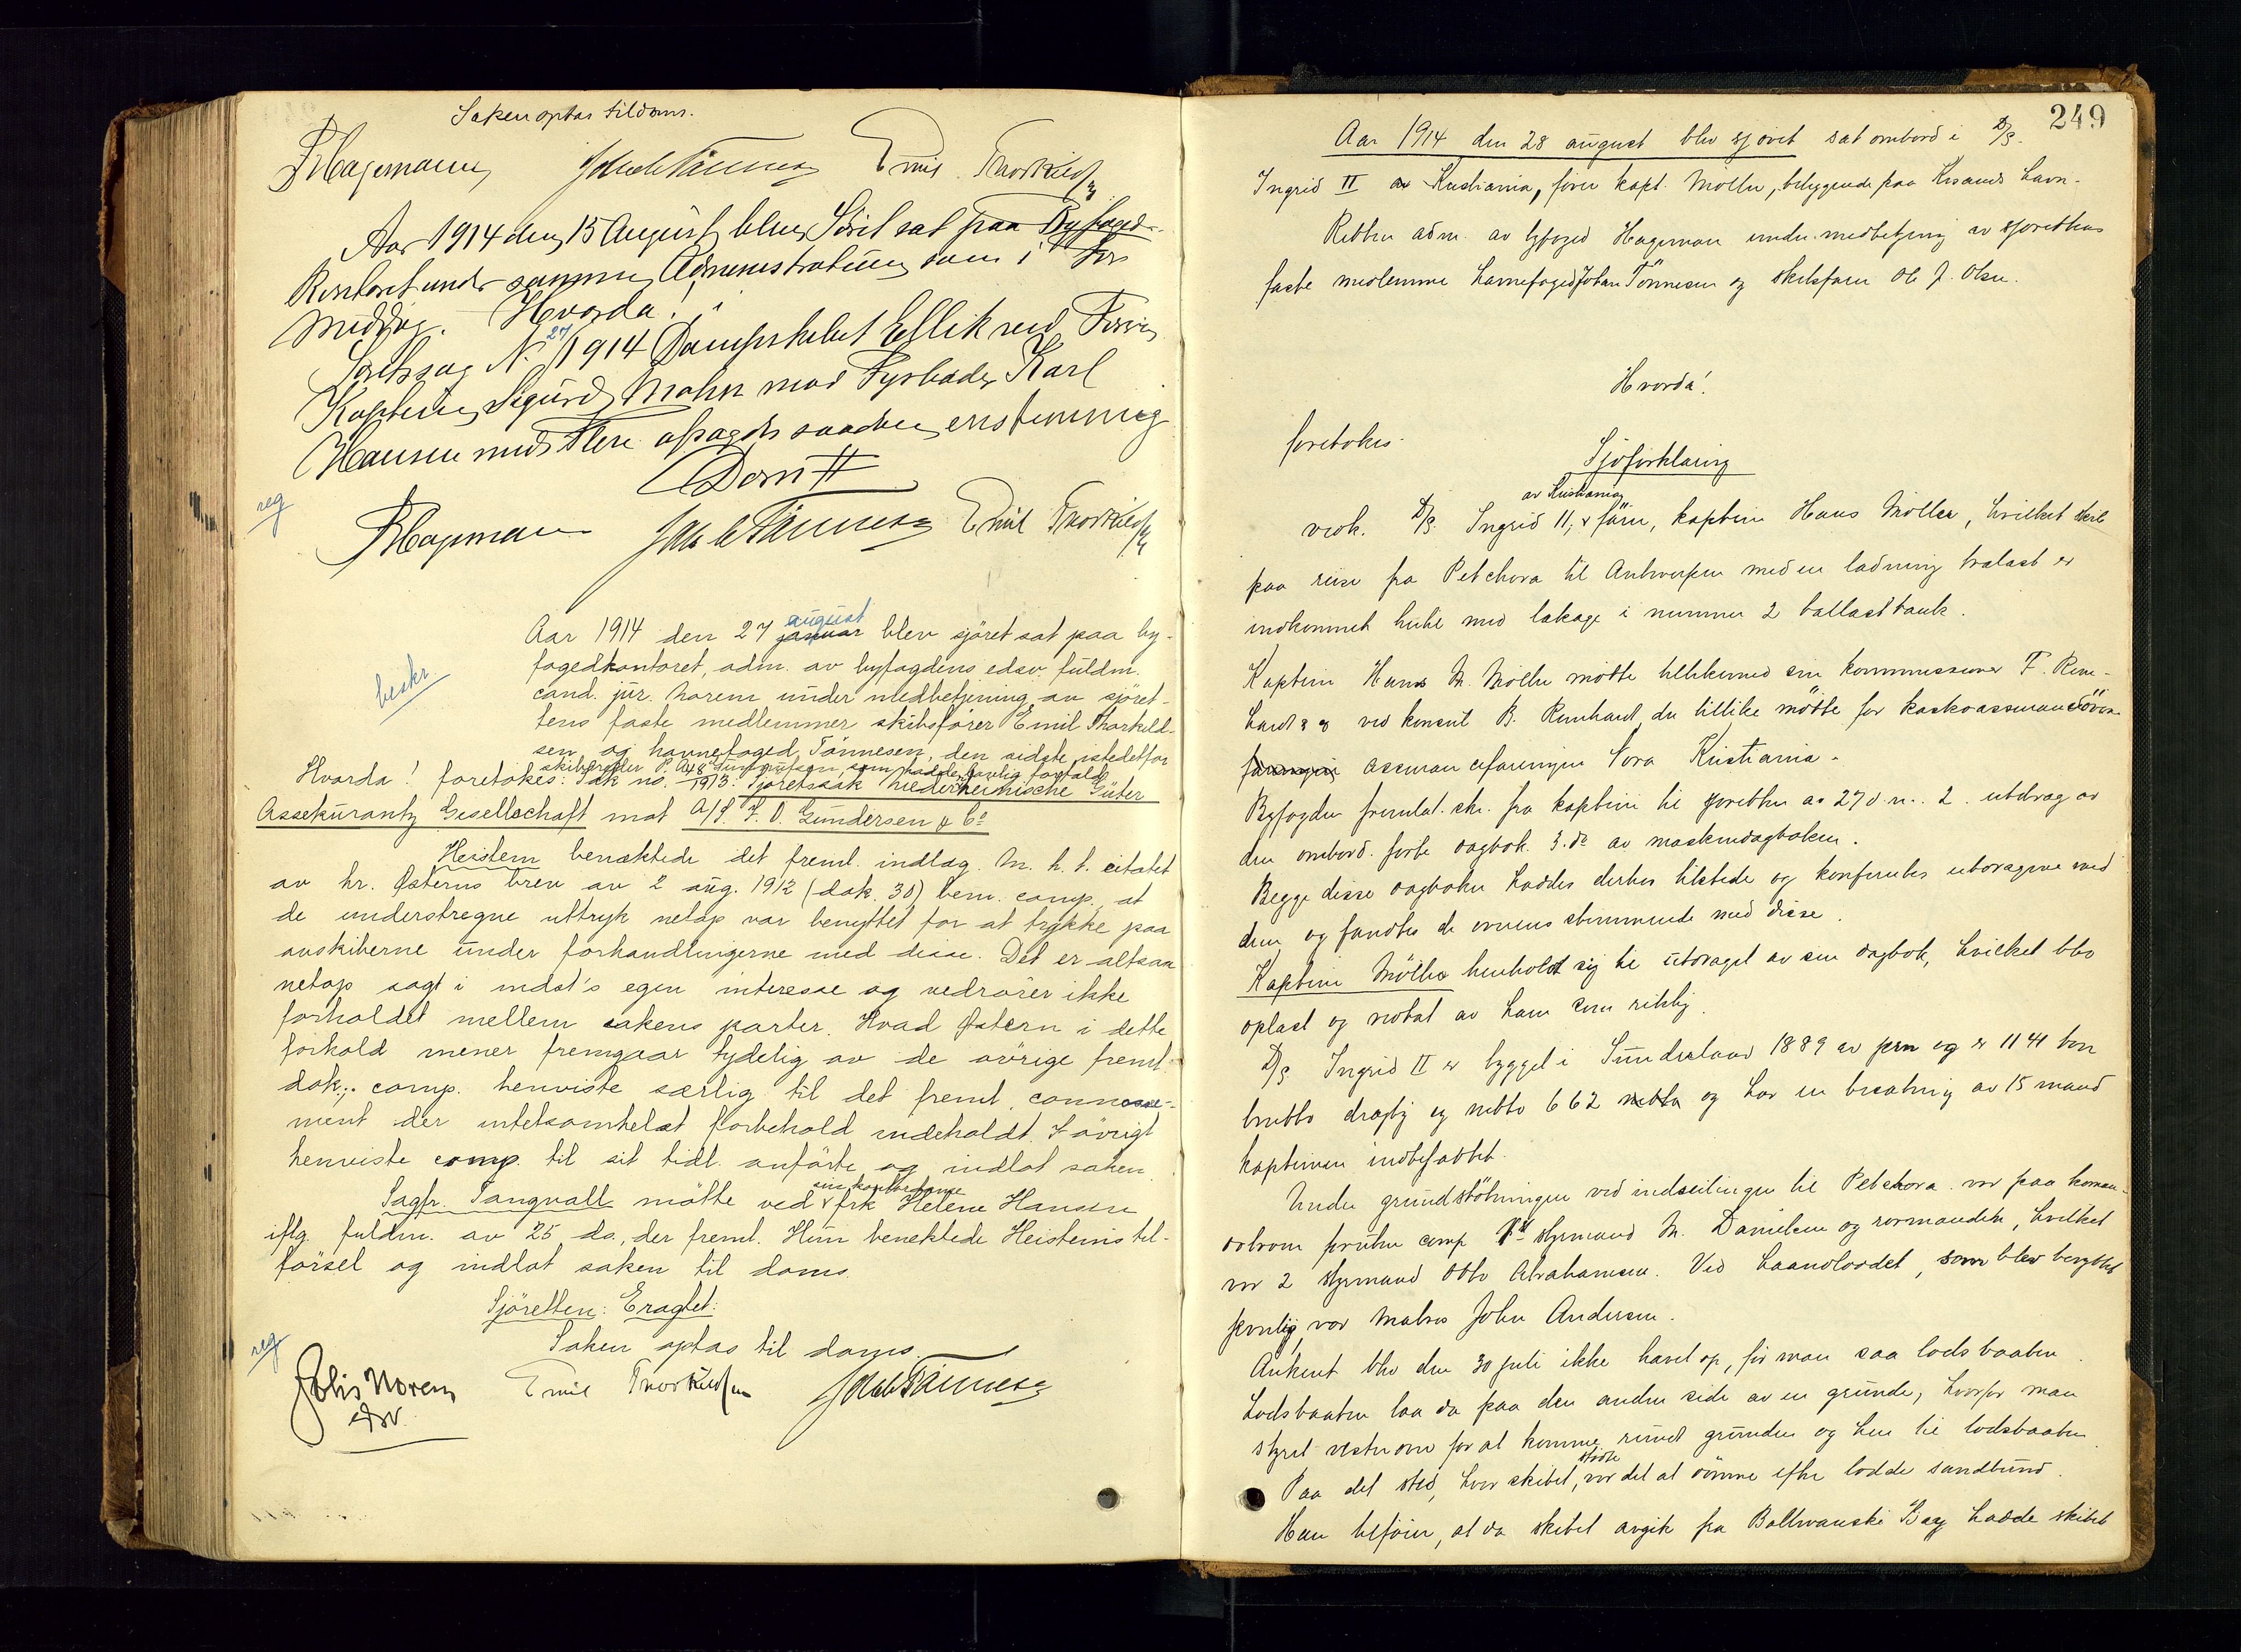 Saken optas til doms.
Hagemann Jakob Tönnesen Emil Thorkildsen
Aar 1914 den 15 August blev Söret sat paa Byfoged-
kontoret under samme Administration som i For
middag. Hvorda!
Söretssag N. 27/1914 Dampskibet Ellik ved Förer
Kaptein Sigurd Mohn mod Fyrböder Karl
Hansen med Flere afsagdes saadan enstemmig
Dom
reg
Hagemann Jakob Tönnesen Emil Thorkildsen
Aar 1914 den 27 januar august blev sjöret sat paa by-
fogedkontoret, adm. av byfogdens edsv. fuldm.
beskr.
cand. jur. Norem under medbetjening av sjöret-
tens faste medlemmer skibsförer Emil Thorkild-
sen og havnefoged Tönnesen, den sidste istedetfor
skibsreder P. A. Gundersen, som hadde lovlig forfald
Hvorda! foretokes: Sak no. 48/1913. Sjöretssak Niederrheinische Güter
Assekurantz Gesellschaft mot A/S. J. O. Gundersen & Co
Heistein benæktede det freml. indlæg. M. h. t. citatet
av hr. Österns brev av 2 aug. 1912 (dok. 30) bem. comp., at
de understregne uttryk netop var benyttet for at trykke paa
avskiberne under forhandlingerne med disse. Det er altsaa
netop sagt i indst's egen interesse og vedrörer ikke
forholdet mellem sakens parter. Hvad Östern i dette
forhold mener fremgaar tydelig av de övrige freml.
dok.; comp. henviste særlig til det freml. connosse-
ment der intetsomhelst forbehold indeholdt. I övrigt
henviste comp. til sit tidl. anförte og indlot saken.
sin kontordame
Sagfr. Tangvall mötte ved frk Helene Hansen
iflg. fuldm. av 25 ds., der freml. Hun benektede Heisteins til-
försel og indlot saken til doms.
Sjöretten: Eragtet:
Saken optas til doms.
reg
Norem Emil Thorkildsen Jakob Tönnesen
edsv.
249
Aar 1914 den 28 august blev sjöret sat ombord i D/S.
Ingrid II av Kristiania, förer kapt. Möller, beliggende paa Krsands havn.
Retten adm. av byfoged Hageman under medbetjening av sjörettens
faste medlemmer havnefoged Johan Tönnesen og skibsförer Ole J. Olsen.
Hvorda!
foretokes.
Sjöforklaring
av Kristiania
vedk. D/S. Ingrid II, förer, kaptein Hans Möller, hvilket skib
paa reise fra Petchora til Antwerpen med en ladning trælast er
indkommet hertil med lækage i nummer 2 ballasttank.
Kaptein Hans M. Möller mötte tillikemed sin kommissionær F. Rein-
hardt & ved konsul B. Reinhardt, der tillike mötte for kaskoassurandören
assuranceforeningen Nora Kristiania.
Byfogden fremlat. skr. fra kaptein til sjöretten av 27 d. m. 2. utdrag av
den ombord. förte dagbok. 3. do av maskindagboken.
Begge disse dagböker haddes derhos tilstede og konfereertes utdragene med
dem og fandtes de overensstemmende med disse.
Kaptein Möller henholdt sig til utdraget av sin dagbok, hvilket blev
oplæst og vedtat av ham som riktig.
D/S Ingrid II er bygget i Sunderland 1889 av jern og er 1141 ton
brutto drægtig og netto 662 netto og har en besætning av 15 mand
kapteinen indbefattet.
Under grundstötningen ved indseilingen til Petchora var paa koman-
dobroen foruten comp 1st styrmand M. Danielsen og rormanden, hvilket
var 2 styrmand Otto Abrahamsen. Ved haandloddet, som blev benyttet
jevnlig, var Matros John Andersen.
Ankeret blev den 30 juli ikke hævet op, för man saa lodsbaaten.
Lodsbaaten laa da paa den anden side av en grunde, hvorfor man
styret vestover for at komme rundt grunden og hen til lodsbaaten
Paa det sted, hvor skibet stödte, var det at dömme efter loddet sandbund.
Han tilföier, at da skibet avgik fra Bolwanski Bay hadde skibet